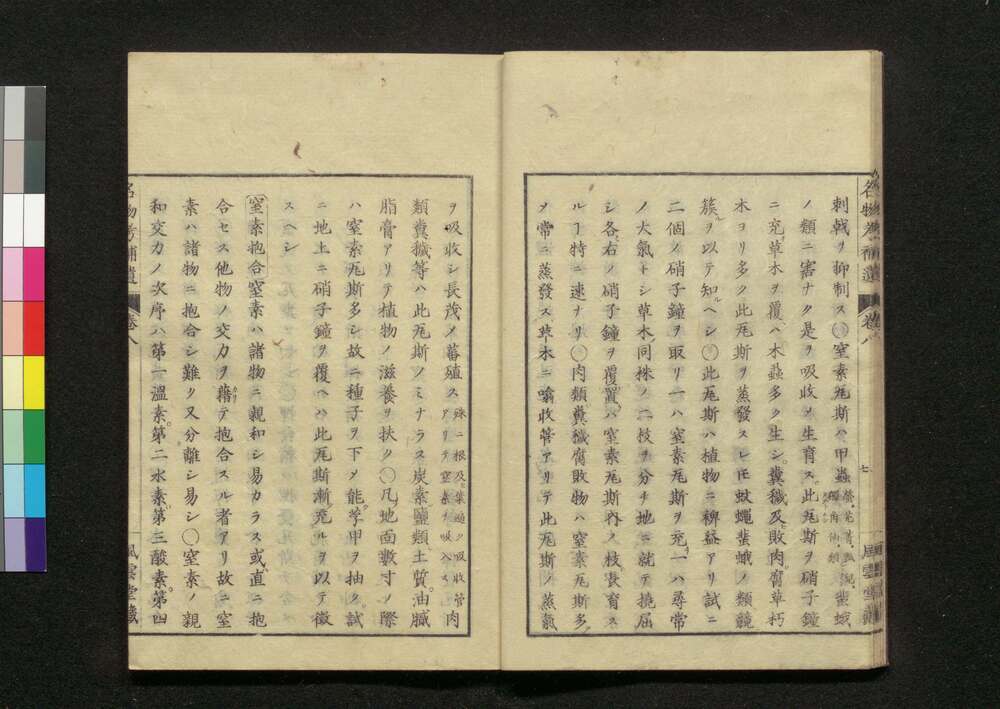 名物考補遺 卷八 七 風雲堂藏
刺戟ヲ抑制ス〇窒素瓦斯ハ甲蟲
ノ類ニ害ナク是ヲ吸收乄生育ス此瓦斯ヲ硝子鐘
ニ充草木ヲ覆ハ木蟲多ク生シ糞穢及敗肉腐草朽
木ヨリ多ク此瓦斯ヲ蒸發スレ𪜈蚊蠅蜚蛾ノ類競
簇ルヲ以テ知ルヘシ〇此瓦斯ハ植物ニ稗益アリ試ニ
二個ノ硝子鐘ヲ取リ一ハ窒素瓦斯ヲ充一ハ尋常
ノ大氣トシ草木同株ノ二枝ヲ分チ地ニ就テ撓屈
シ各右ノ硝子鐘ヲ覆置ハ窒素瓦斯内ノ枝長育ス
ルヿ特ニ速ナリ〇肉類糞穢腐敗物ハ窒素瓦斯多
乄常ニ蒸發ス草木ニ噏收管アリテ此瓦斯ノ蒸氣
ヲ吸收シ長茂乄蕃殖ス 殊ニ根及葉通ク吸收管アリテ窒素ヲ吸入ス 肉
類糞穢等ハ此瓦斯ノミナラス炭素鹽類土質油膩
脂膏アリテ植物ノ滋養ヲ扶ク〇凡地面數寸ノ際
ハ窒素瓦斯多シ故ニ種子ヲ下乄能孚甲ヲ抽ク試
ニ地上ニ硝子鐘ヲ覆ヘハ此瓦斯漸充ルヲ以テ徵
スヘシ
窒素抱合 窒素ハ諸物ニ親和シ易カラス或直ニ抱
合セス他物ノ交力ヲ藉テ抱合スル者アリ故ニ窒
素ハ諸物ニ抱合シ難ク又分離シ易シ〇窒素ノ親
和交力ノ次序ハ第一溫素第二水素第三酸素第四
名物考補遺 卷八 風雲堂藏